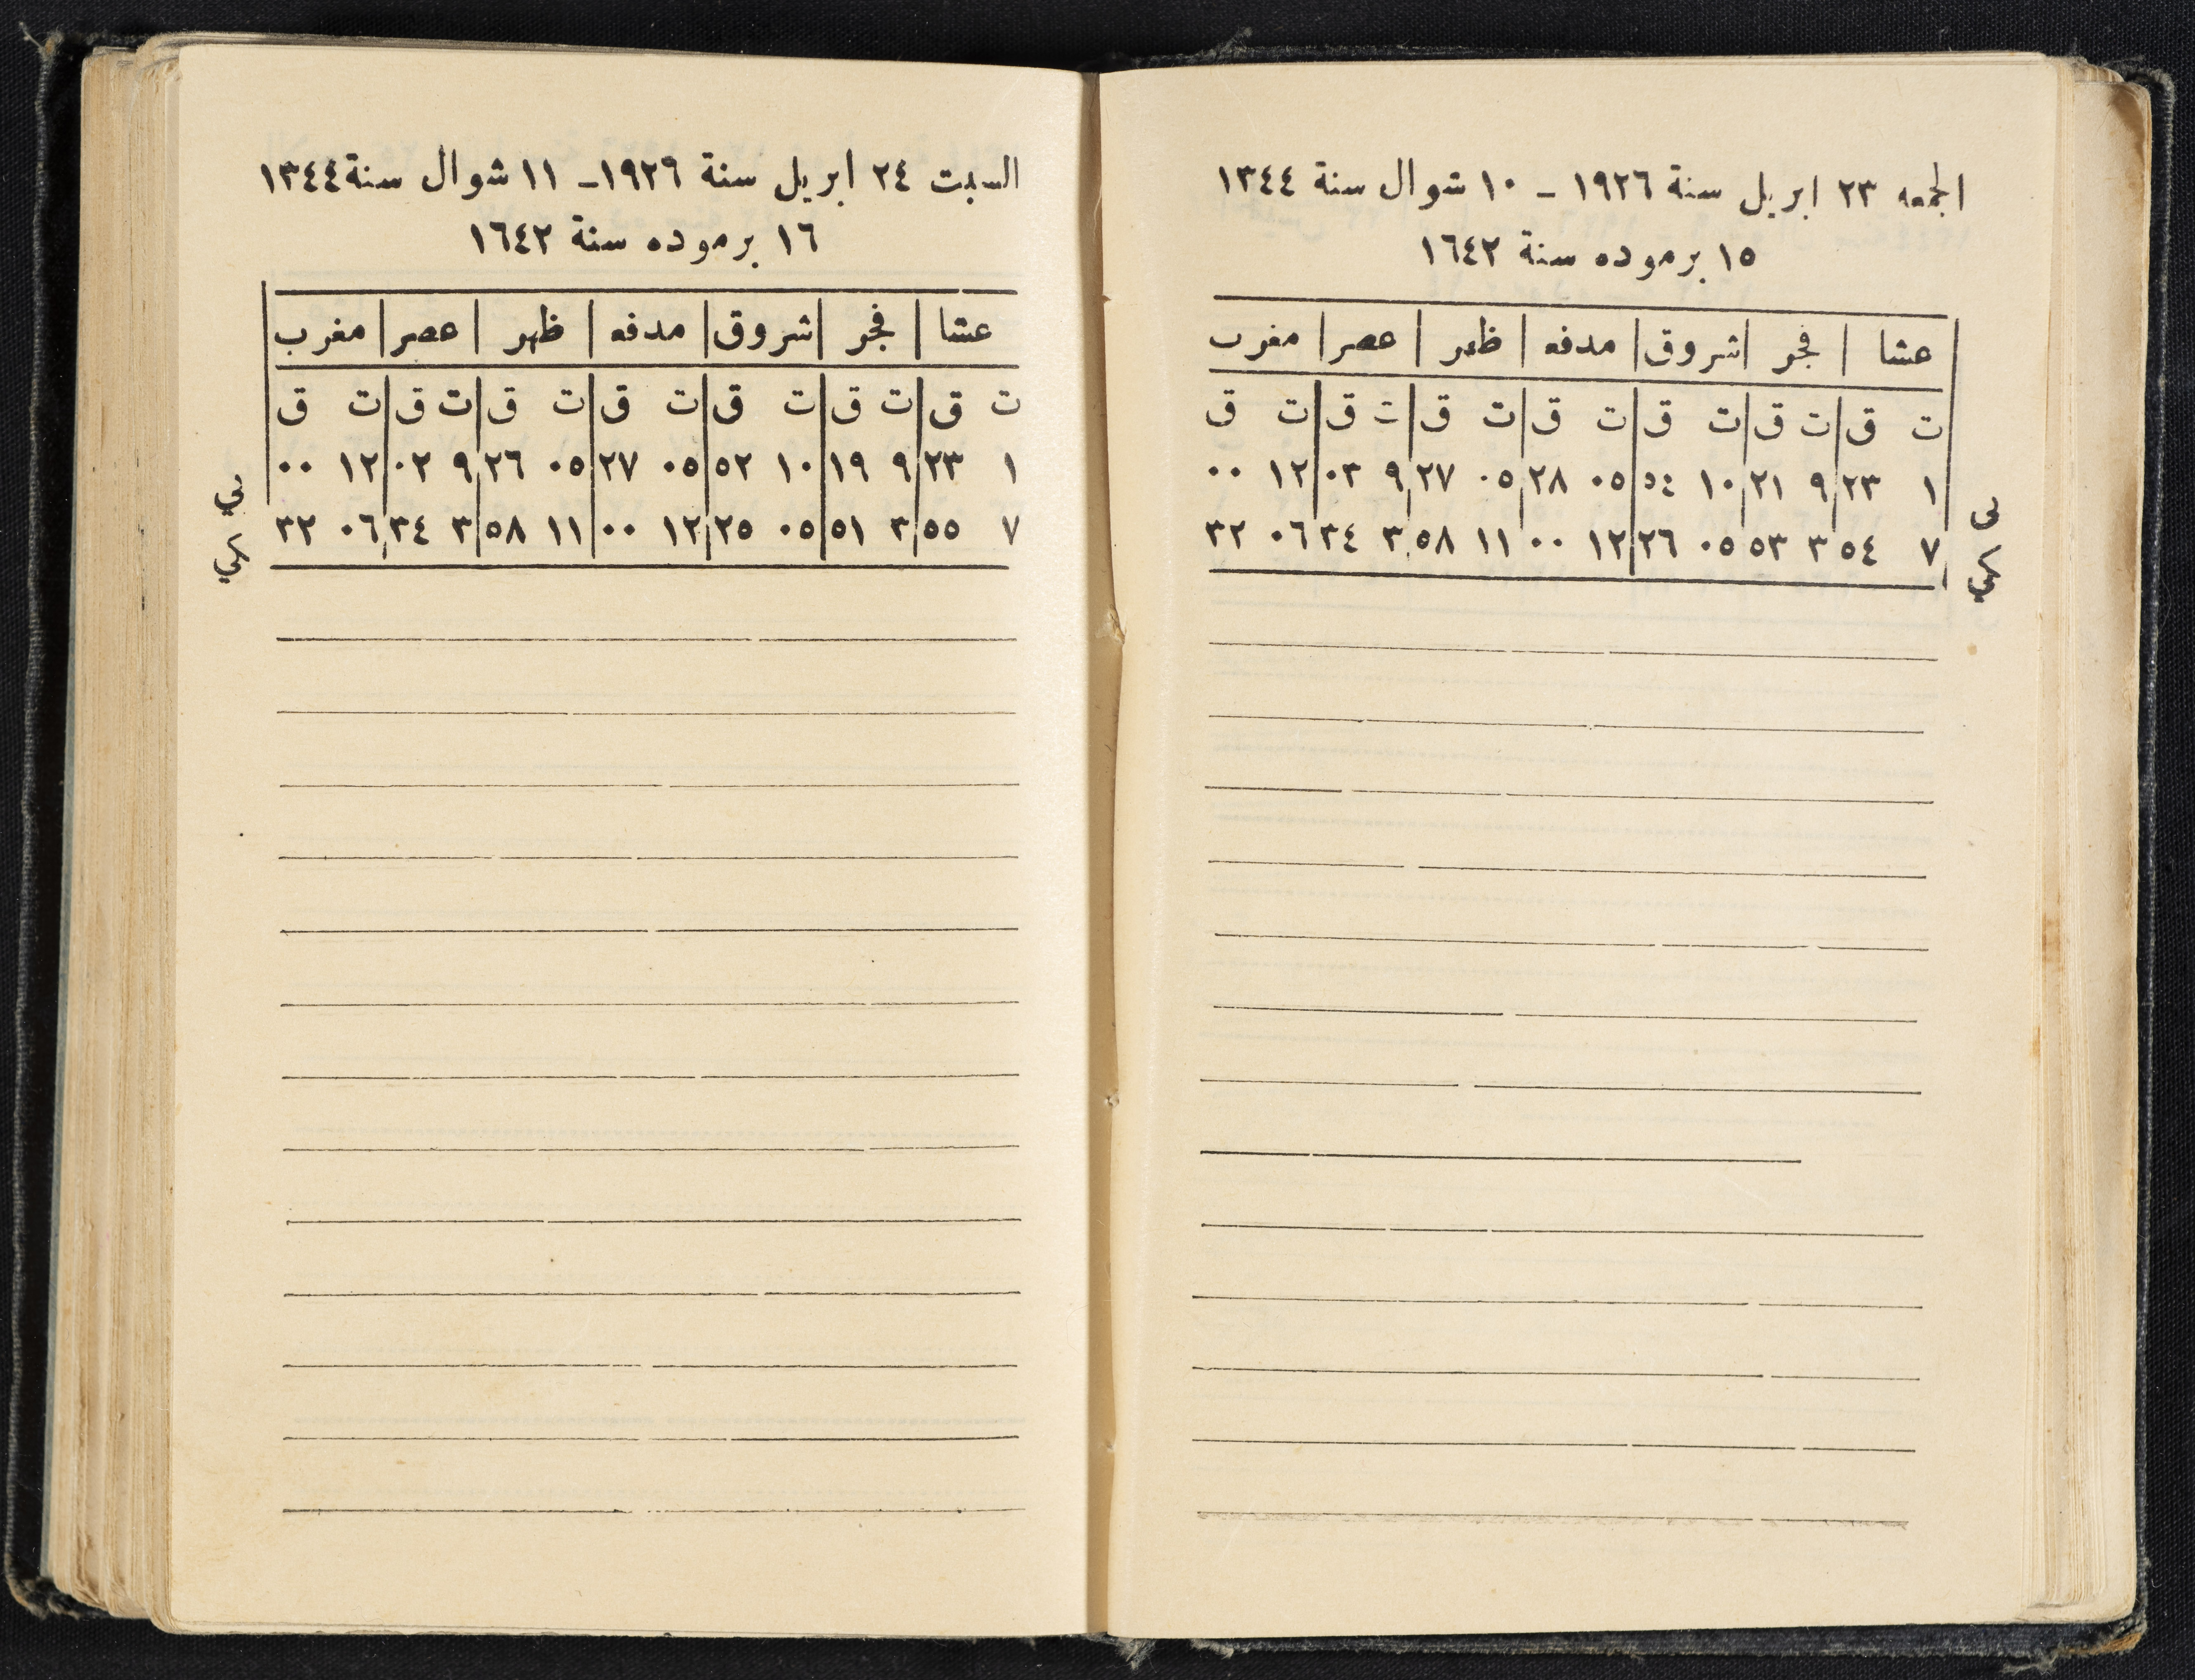 الجمعه ٢٣ ابريل سنة ١٩٢٦ - ١٠ شوال سنة ١٣٤٤
١٥ برموده سنة ١٦٤٢
عشا فجر شروق مدفع ظهر عصر مغرب
ت ق ت ق ت ق ت ق ت ق ت ق ت ق
١ ٢٣ ٩ ٢١ ١٠ ٥٤ ٠٥ ٢٨ ٠٥ ٢٧ ٩ ٠٣ ١٢ ٠٠
٧ ٥٤ ٣ ٥٣ ٠٥ ٢٦ ١٢ ٠٠ ١١ ٥٨ ٣ ٣٤ ٠٦ ٣٢
السبت ٢٤ ابريل سنة ١٩٢٩ - ١١ شوال سنة ١٣٤٤
١٦ برموده سنة ١٦٤٢
عشا فجر شروق مدفع ظهر عصر مغرب
ت ق ت ق ت ق ت ق ت ق ت ق ت ق
١ ٢٣ ٩ ١٩ ١٠ ٥٢ ٠٥ ٢٧ ٠٥ ٢٦ ٩ ٠٢ ١٢ ٠٠
٧ ٥٥ ٣ ٥١ ٠٥ ٢٥ ١٢ ٠٠ ١١ ٥٨ ٣ ٣٤ ٠٦ ٣٢